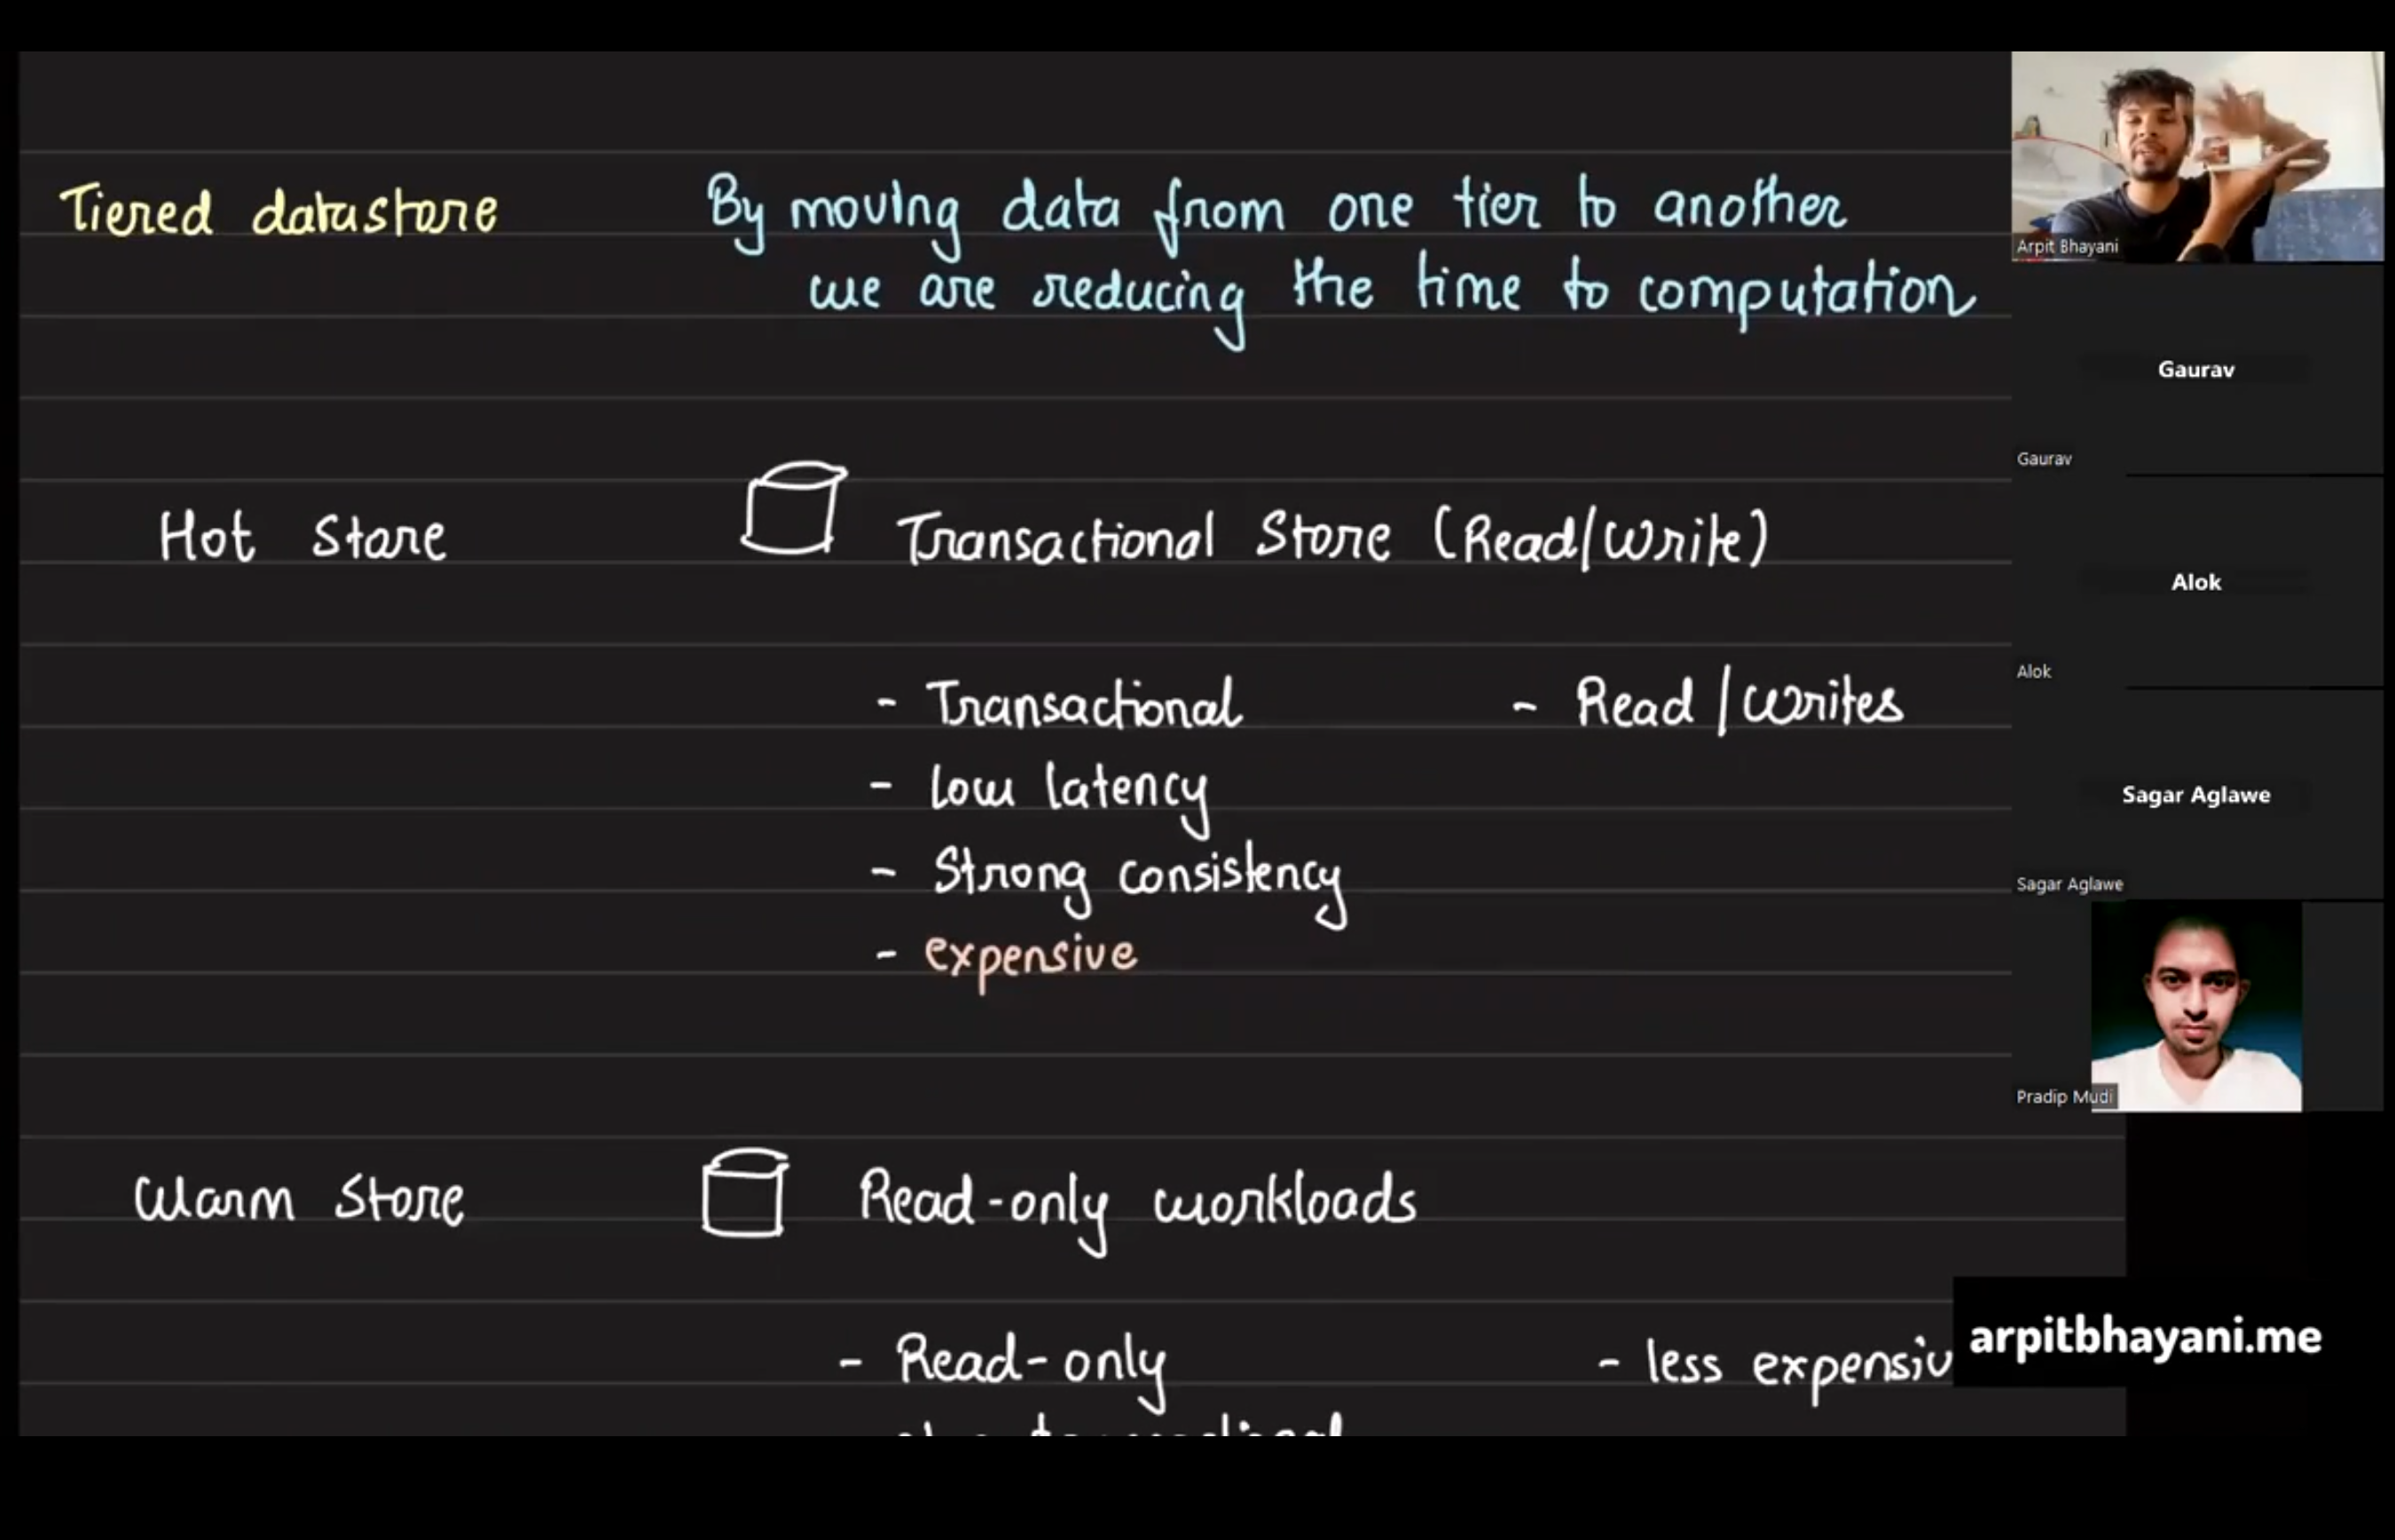 Tiered datastore
By moving data from one tier to another
we are reducing the time to computation
Hot Store
Transactional Store (Read/Write)
- Transactional
- Read / Writes
- Low latency
- Strong consistency
- expensive
Warm Store
Read-only workloads
- Read-only
- less expensiv
Arpit Bhayani
Gaurav
Gaurav
Alok
Alok
Sagar Aglawe
Sagar Aglawe
Pradip Mudi
arpitbhayani.me